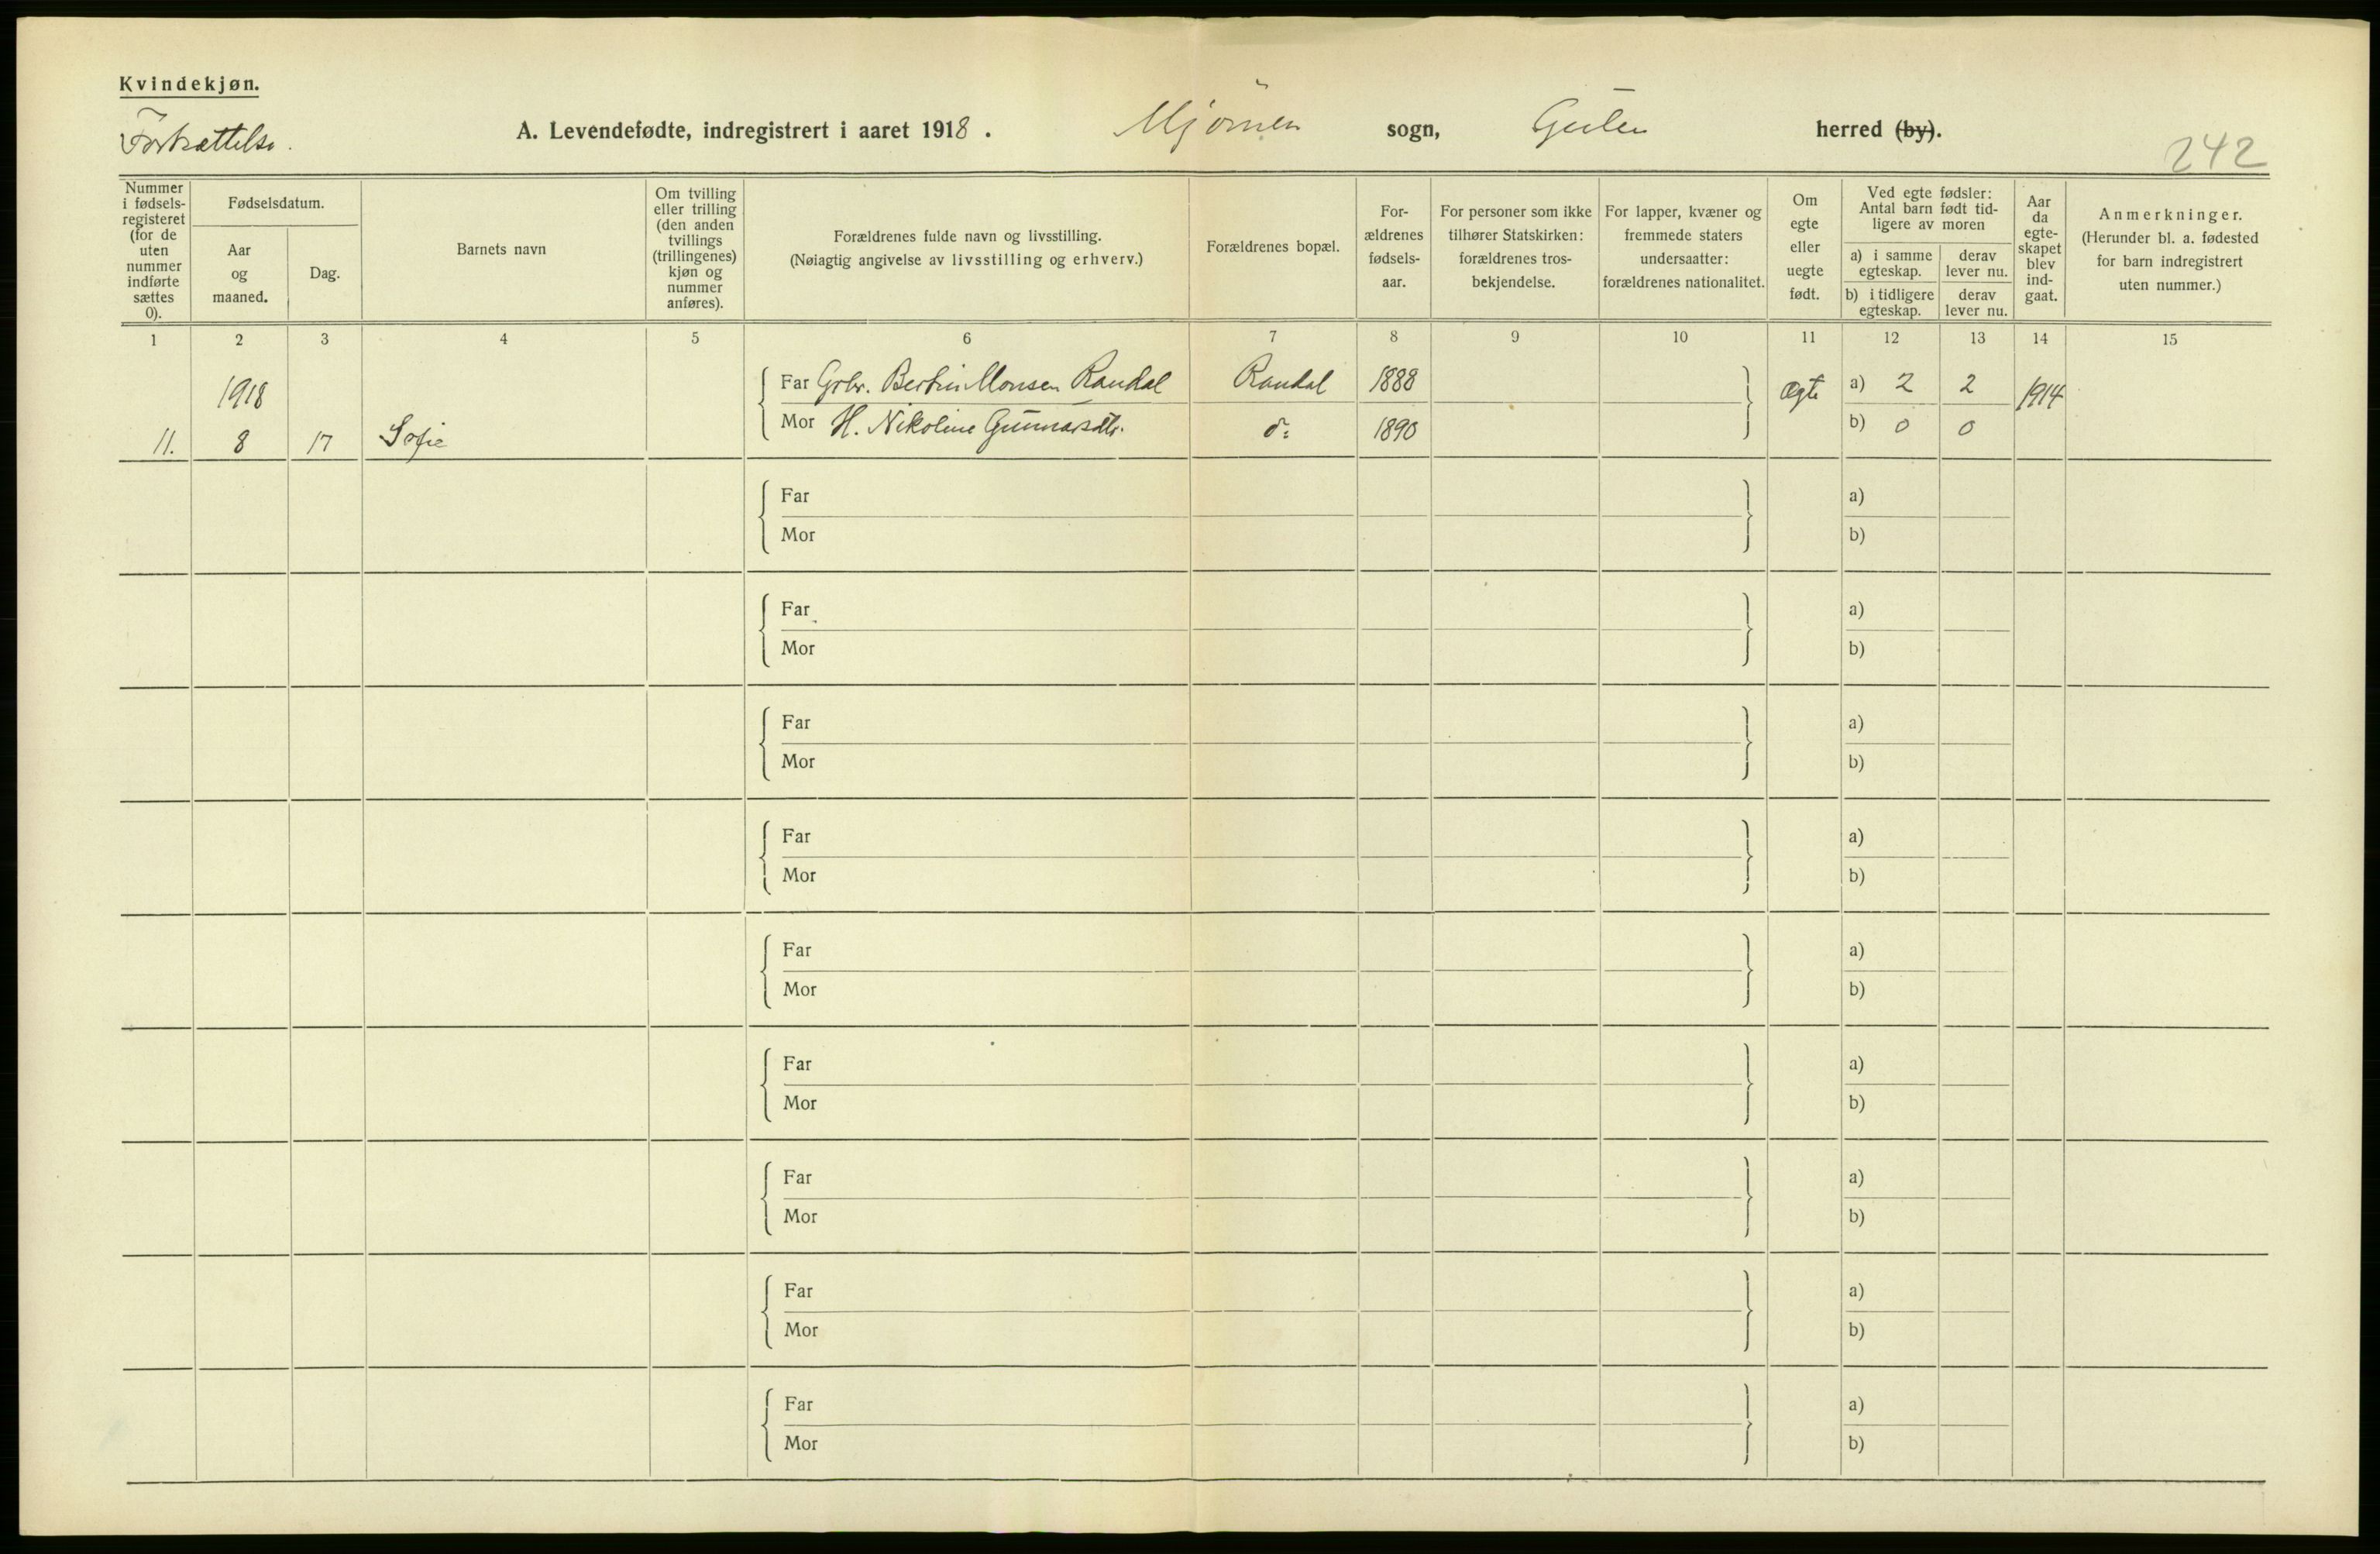 Kvindekjøn.
Fortsættelse.
A. Levendefødte, indregistrert i aaret 1918. Mjömen sogn, Gulen herred (by).
242
Nummer i fødsels-registeret (for de uten nummer indførte sættes 0).
Fødselsdatum.
Aar og maaned.
Dag.
Barnets navn
Om tvilling eller trilling (den anden tvillings (trillingenes) kjøn og nummer anføres).
Forældrenes fulde navn og livsstilling.
(Nøiagtig angivelse av livsstilling og erhverv.)
Forældrenes bopæl.
For-ældrenes fødsels-aar.
For personer som ikke tilhører Statskirken: forældrenes tros-bekjendelse.
For lapper, kvæner og fremmede staters undersaatter: forældrenes nationalitet.
Om egte eller uegte født.
Ved egte fødsler: Antal barn født tid-ligere av moren
a) i samme egteskap.
derav lever nu.
b) i tidligere egteskap.
derav lever nu.
Aar da egte-skapet blev ind-gaat.
Anmerkninger.
(Herunder bl. a. fødested for barn indregistrert uten nummer.)
1 2 3 4 5 6 7 8 9 10 11 12 13 14 15
1918 Far Grbr. Bertin Monsen Randal Randal 1888 Ægte a) 2 2 1914
11. 8 17 Sofie Mor H. Nikoline Gunnarsdtr. do 1890 b) 0 0
Far a)
Mor b)
Far a)
Mor b)
Far a)
Mor b)
Far a)
Mor b)
Far a)
Mor b)
Far a)
Mor b)
Far a)
Mor b)
Far a)
Mor b)
Far a)
Mor b)